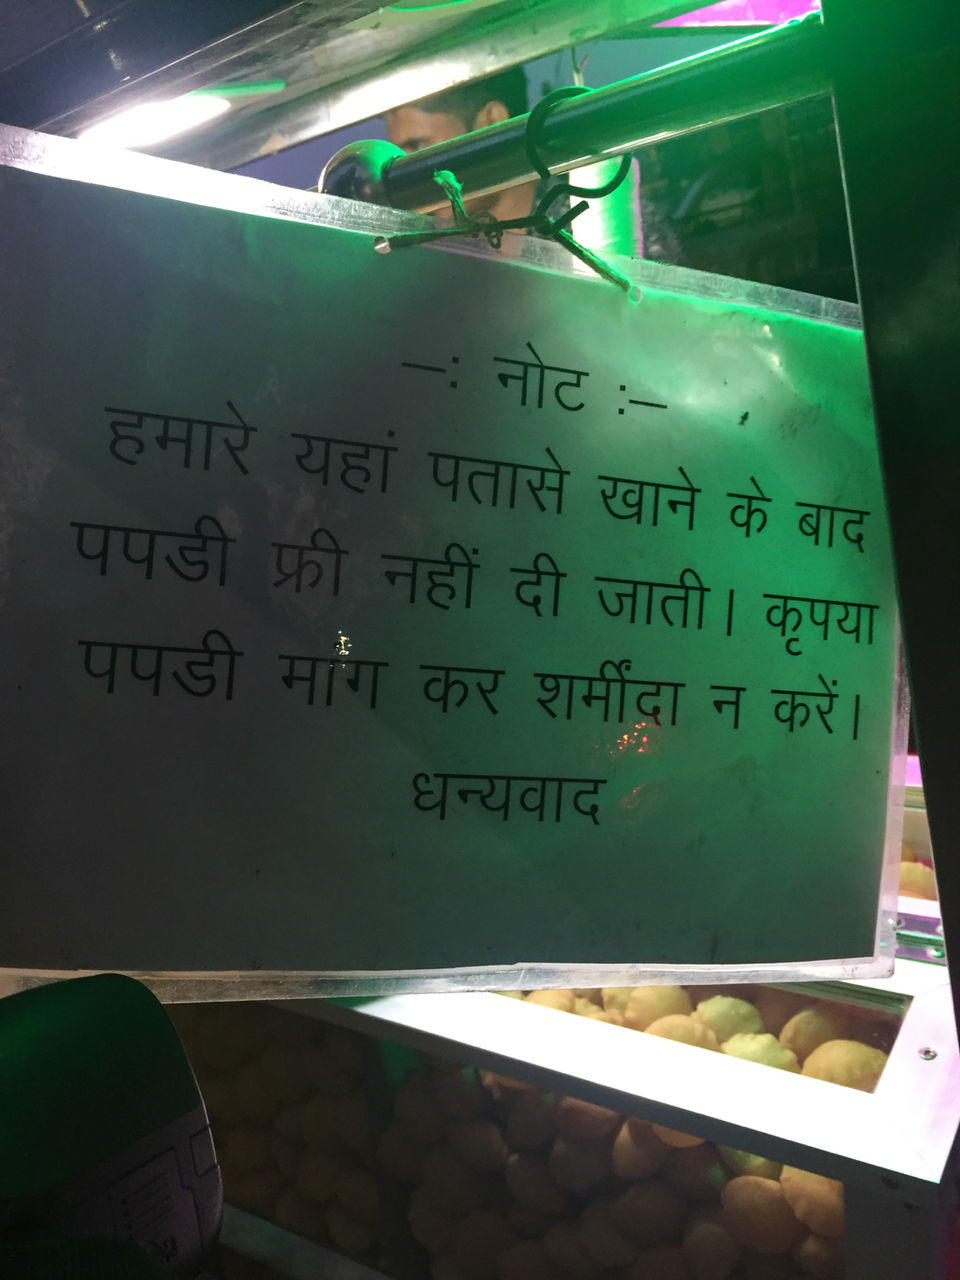 –: नोट :–
हमारे यहां पतासे खाने के बाद
पपडी फ्री नहीं दी जाती। कृपया
पपडी मांग कर शर्मींदा न करें।
धन्यवाद